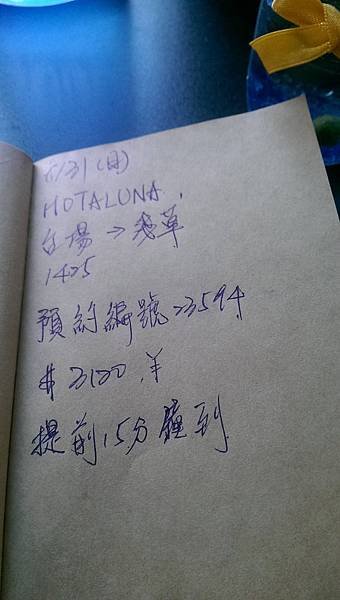 5/31(日)
HOTALUNA.
台場→淺草
1425
預約編號23594
#3120.¥
提前15分鐘到